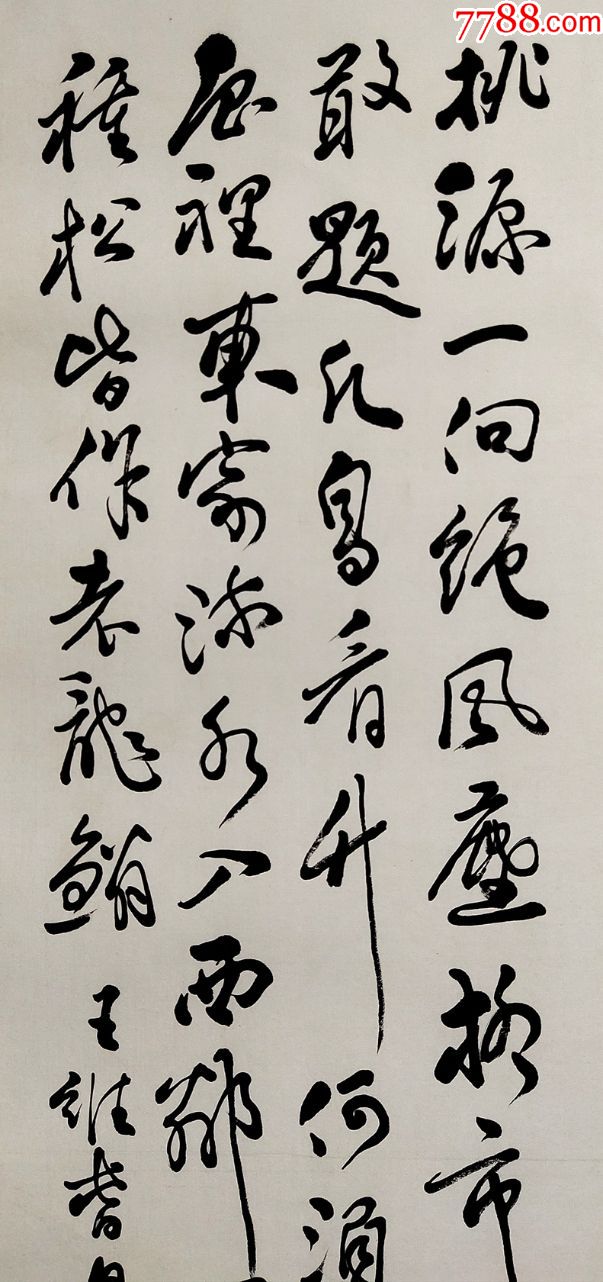 7788.com
桃源一向絕風塵柳市
敢題凡鳥看竹何須
屋裡東家流水入西鄰
種松皆作老龍鱗
王維